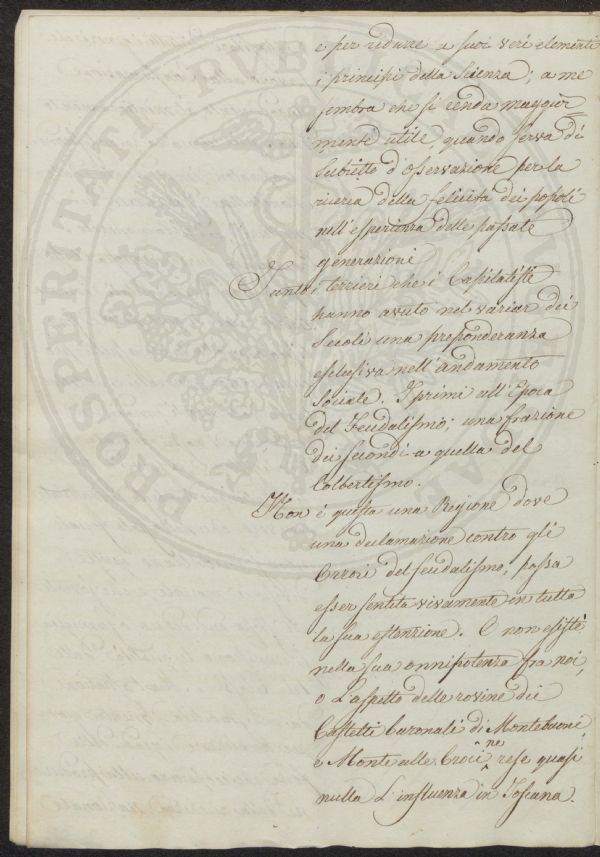 e per ridurre a suoi veri elementi
i principj della Scienza; a me
sembra che si renda maggior
mente utile, quando serva di
Subietto d'osservazione per la
ricerca della felicità dei popoli
nell'esperienza delle passate
generazioni
Tanto i terrieri che i Capitalisti
hanno avuto nel variar dei
Secoli una preponderanza
esclusiva nell'andamento
Sociale. I primi all'Epoca
del Feudalismo; una frazione
dei secondi a quella del
Colbertismo.
Non è questa una Regione dove
una declamazione contro gli
Errori del feudalismo, possa
esser sentita vivamente in tutta
la sua estenzione. E non esistè
nella sua onnipotenza fra noi,
o L'aspetto delle rovine dei
Castelli baronali di Montebuoni
e Monte alle Croci ne rese quasi
nulla L'influenza in Toscana.
PROSPERITATI PUBLICAE